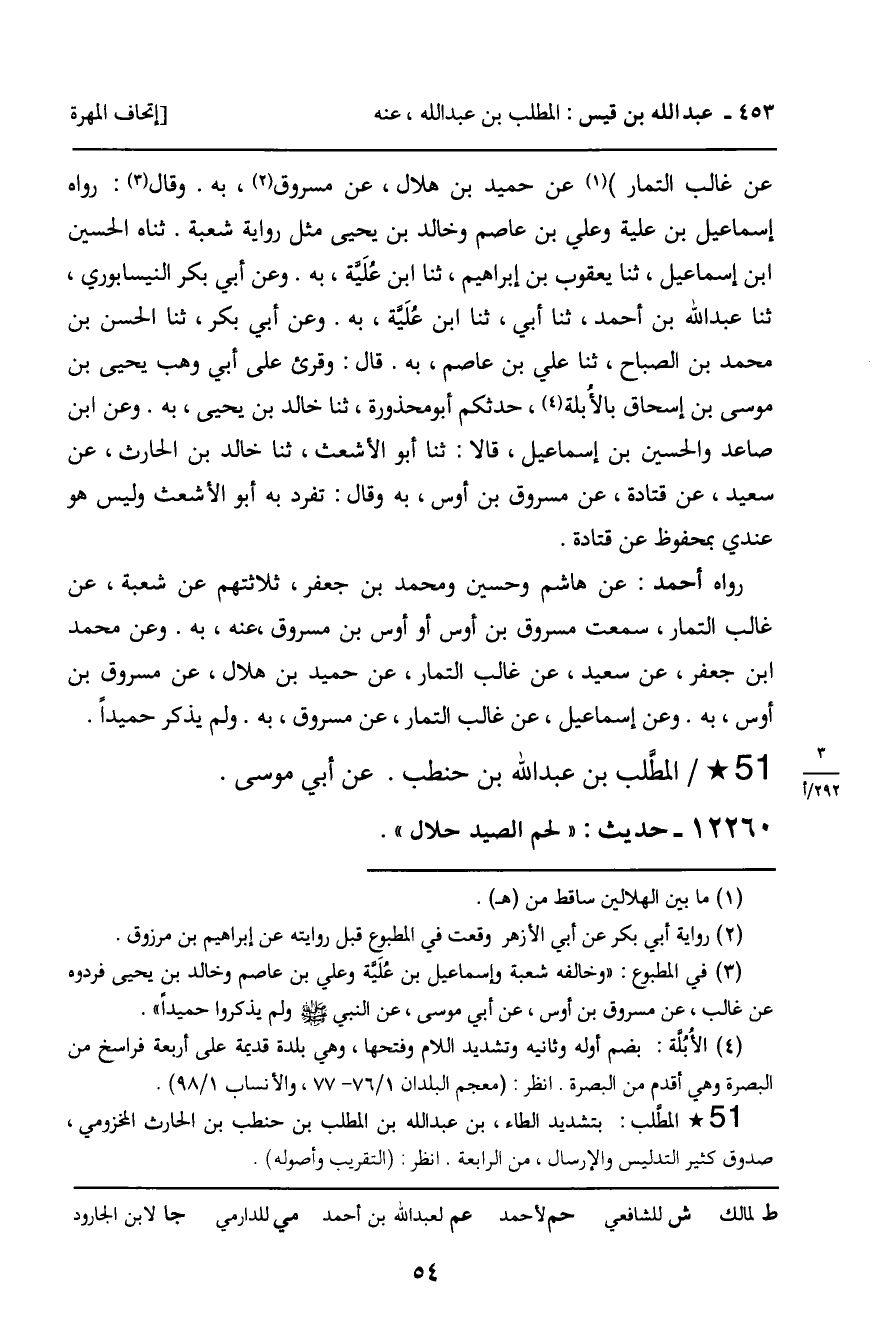 ٤٥٣ ـ عبدالله بن قيس : المطلب بن عبدالله ، عنه [إتحاف المهرة
عن غالب التمار )(١) عن حميد بن هلال ، عن مسروق(٢) ، به . وقال(٣) : رواه
إسماعيل بن علية وعلي بن عاصم وخالد بن يحيى مثل رواية شعبة . ثناه الحسين
ابن إسماعيل ، ثنا يعقوب بن إبراهيم ، ثنا ابن عُلَيَّة ، به . وعن أبي بكر النيسابوري ،
ثنا عبدالله بن أحمد ، ثنا أبي ، ثنا ابن عُلَيَّة ، به . وعن أبي بكر ، ثنا الحسن بن
محمد بن الصباح ، ثنا علي بن عاصم ، به . قال : وقرئ على أبي وهب يحيى بن
موسى بن إسحاق بالأُبلة(٤) ، حدثكم أبومحذورة ، ثنا خالد بن يحيى ، به . وعن ابن
صاعد والحسين بن إسماعيل ، قالا : ثنا أبو الأشعث ، ثنا خالد بن الحارث ، عن
سعيد ، عن قتادة ، عن مسروق بن أوس ، به وقال : تفرد به أبو الأشعث وليس هو
عندي بمحفوظ عن قتادة .
رواه أحمد : عن هاشم وحسين ومحمد بن جعفر ، ثلاثتهم عن شعبة ، عن
غالب التمار ، سمعت مسروق بن أوس أو أوس بن مسروق ،عنه ، به . وعن محمد
ابن جعفر ، عن سعيد ، عن غالب التمار ، عن حميد بن هلال ، عن مسروق بن
أوس ، به . وعن إسماعيل ، عن غالب التمار ، عن مسروق ، به . ولم يذكر حميداً .
51 ★ / المطَّلب بن عبدالله بن حنطب . عن أبي موسى .
٣
٢٩٢/أ
١٢٢٦٠ ـ حديث : « لحم الصيد حلال » .
(١) ما بين الهلالين ساقط من (هـ) .
(٢) رواية أبي بكر عن أبي الأزهر وقعت في المطبوع قبل روايته عن إبراهيم بن مرزوق .
(٣) في المطبوع : «وخالفه شعبة وإسماعيل بن عُلَيَّة وعلي بن عاصم وخالد بن يحيى فردوه
عن غالب ، عن مسروق بن أوس ، عن أبي موسى ، عن النبي ﷺ ولم يذكروا حميداً» .
(٤) الأُبُلَّة : بضم أوله وثانيه وتشديد اللام وفتحها ، وهي بلدة قديمة على أربعة فراسخ من
البصرة وهي أقدم من البصرة . انظر : (معجم البلدان ٧٦/١- ٧٧ ، والأنساب ٩٨/١) .
51 ★ المطَّلب : بتشديد الطاء ، بن عبدالله بن المطلب بن حنطب بن الحارث المخزومي ،
صدوق كثير التدليس والإرسال ، من الرابعة . انظر : (التقريب وأصوله) .
ط لمالك ش للشافعي حم لأحمد عم لعبدالله بن أحمد مي للدارمي جا لابن الجارود
٥٤